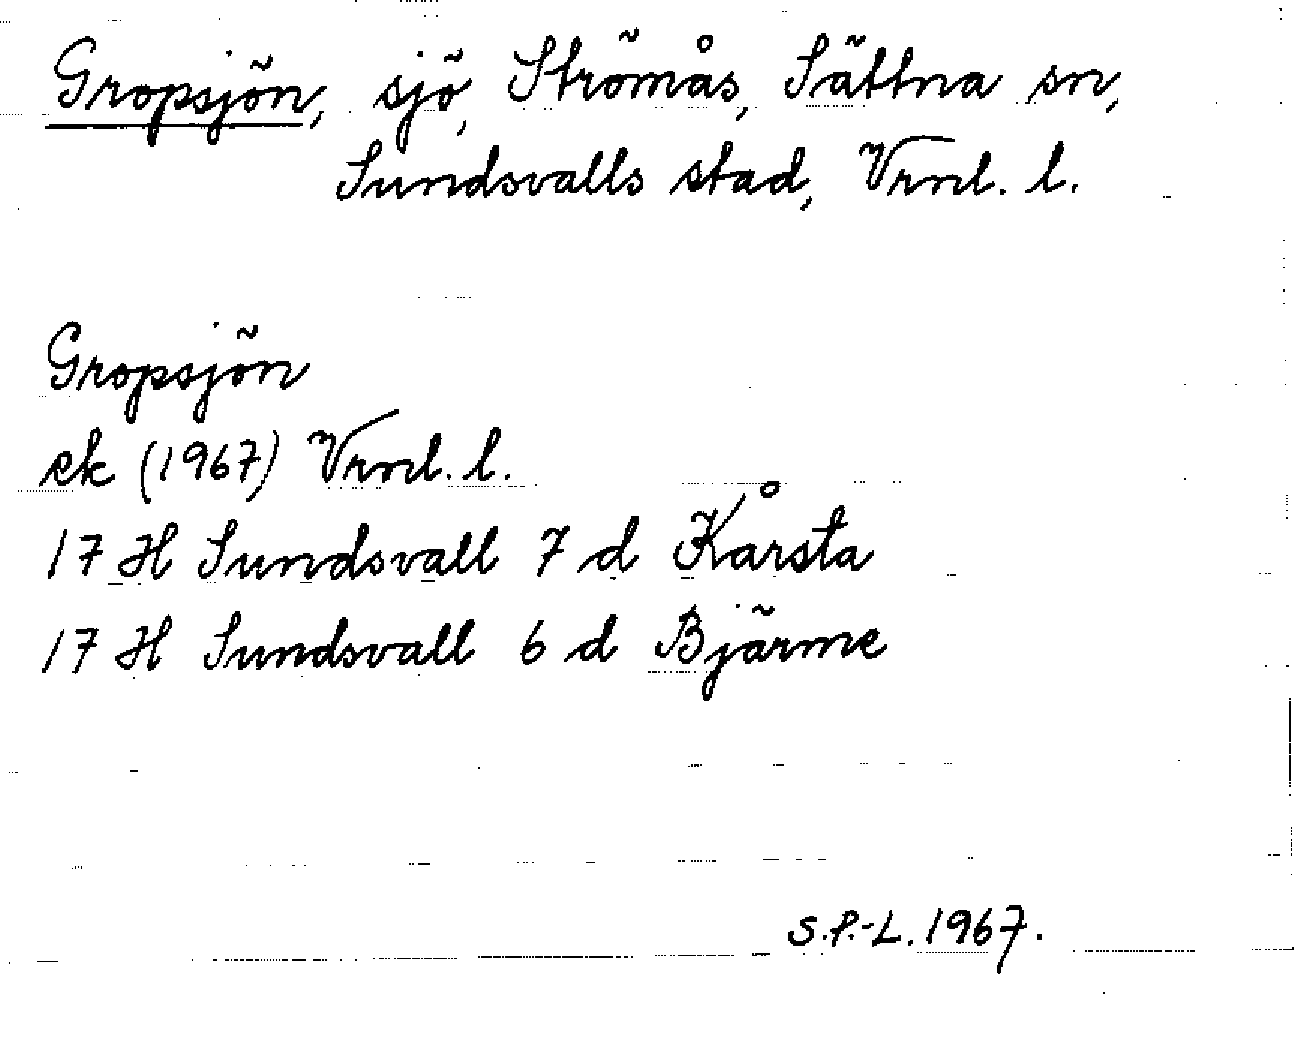 Gropsjön, sjö, Strömås, Sättna sn,
Sundsvalls stad, Vrml. l.
Gropsjön
ek (1967) Vrml. l.
17 H Sundsvall 7 d Kårsta
17 H Sundsvall 6 d Bjärme
S.P.-L. 1967.